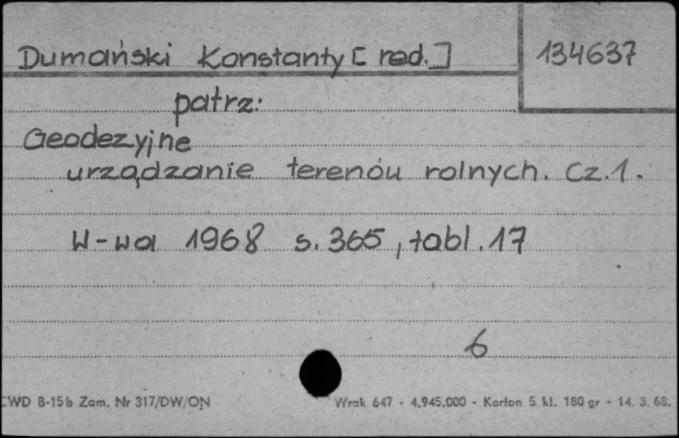 Dumański Konstanty [red.] 134637
patrz:
Geodezyjne
urządzanie terenów rolnych. Cz.1.
W-wa 1968 s. 365, tabl. 17
6
CWD B-15b Zam. Nr 317/DW/ON Wrak 647 - 4.945.000 - Karton 5 kl. 180 gr - 14. 3. 68.